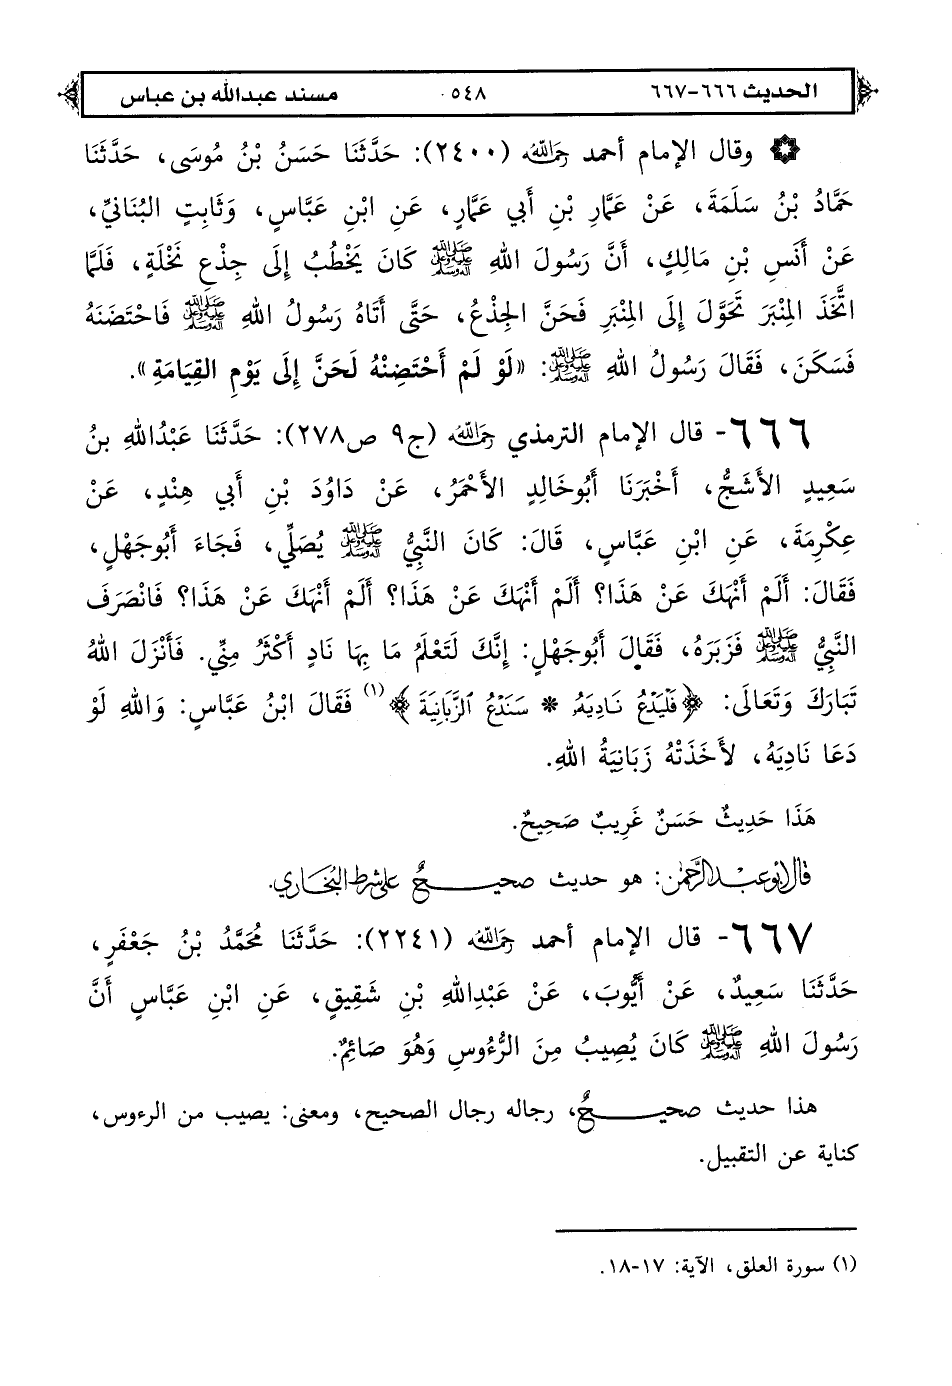 الحديث ٦٦٦-٦٦٧ ٥٤٨ مسند عبدالله بن عباس
وقال الإمام أحمد رحمه الله (٢٤٠٠): حَدَّثَنَا حَسَنُ بْنُ مُوسَى، حَدَّثَنَا
حَمَّادُ بْنُ سَلَمَةَ، عَنْ عَمَّارِ بْنِ أَبي عَمَّارٍ، عَنِ ابْنِ عَبَّاسٍ، وَثَابِتٍ البُنَانيِّ،
عَنْ أَنَسِ بْنِ مَالِكٍ، أَنَّ رَسُولَ اللهِ ﷺ كَانَ يَخْطُبُ إِلَى جِذْعِ نَخْلَةٍ، فَلَمَّا
اتَّخَذَ المِنْبَرَ تَحَوَّلَ إِلَى المِنْبَرِ فَحَنَّ الجِذْعُ، حَتَّى أَتَاهُ رَسُولُ اللهِ ﷺ فَاحْتَضَنَهُ
فَسَكَنَ، فَقَالَ رَسُولُ اللهِ ﷺ: «لَوْ لَمْ أَحْتَضِنْهُ لَحَنَّ إِلَى يَوْمِ القِيَامَةِ».
٦٦٦- قال الإمام الترمذي رحمه الله (ج٩ ص٢٧٨): حَدَّثَنَا عَبْدُاللهِ بنُ
سَعِيدٍ الأَشَجُّ، أَخْبَرَنَا أَبُوخَالِدٍ الأَحْمَرُ، عَنْ دَاوُدَ بْنِ أَبي هِنْدٍ، عَنْ
عِكْرِمَةَ، عَنِ ابْنِ عَبَّاسٍ، قَالَ: كَانَ النَّبِيُّ ﷺ يُصَلِّي، فَجَاءَ أَبُوجَهْلٍ،
فَقَالَ: أَلَمْ أَنْهَكَ عَنْ هَذَا؟ أَلَمْ أَنْهَكَ عَنْ هَذَا؟ أَلَمْ أَنْهَكَ عَنْ هَذَا؟ فَانْصَرَفَ
النَّبِيُّ ﷺ فَزَبَرَهُ، فَقَالَ أَبُوجَهْلٍ: إِنَّكَ لَتَعْلَمُ مَا بِهَا نَادٍ أَكْثَرُ مِنِّي. فَأَنْزَلَ اللهُ
تَبَارَكَ وَتَعَالَى: ﴿فَلْيَدْعُ نَادِيَهُ * سَنَدْعُ الزَّبَانِيَةَ﴾(١) فَقَالَ ابْنُ عَبَّاسٍ: وَاللهِ لَوْ
دَعَا نَادِيَهُ، لأَخَذَتْهُ زَبَانِيَةُ اللهِ.
هَذَا حَدِيثٌ حَسَنٌ غَرِيبٌ صَحِيحٌ.
قال أبو عبد الرحمن: هو حديث صحيحٌ على شرط البخاري.
٦٦٧- قال الإمام أحمد رحمه الله (٢٢٤١): حَدَّثَنَا مُحَمَّدُ بْنُ جَعْفَرٍ،
حَدَّثَنَا سَعِيدٌ، عَنْ أَيُّوبَ، عَنْ عَبْدِاللهِ بْنِ شَقِيقٍ، عَنِ ابْنِ عَبَّاسٍ أَنَّ
رَسُولَ اللهِ ﷺ كَانَ يُصِيبُ مِنَ الرُّءُوسِ وَهُوَ صَائِمٌ.
هذا حديث صحيحٌ، رجاله رجال الصحيح، ومعنى: يصيب من الرءوس،
كناية عن التقبيل.
(١) سورة العلق، الآية: ١٧-١٨.